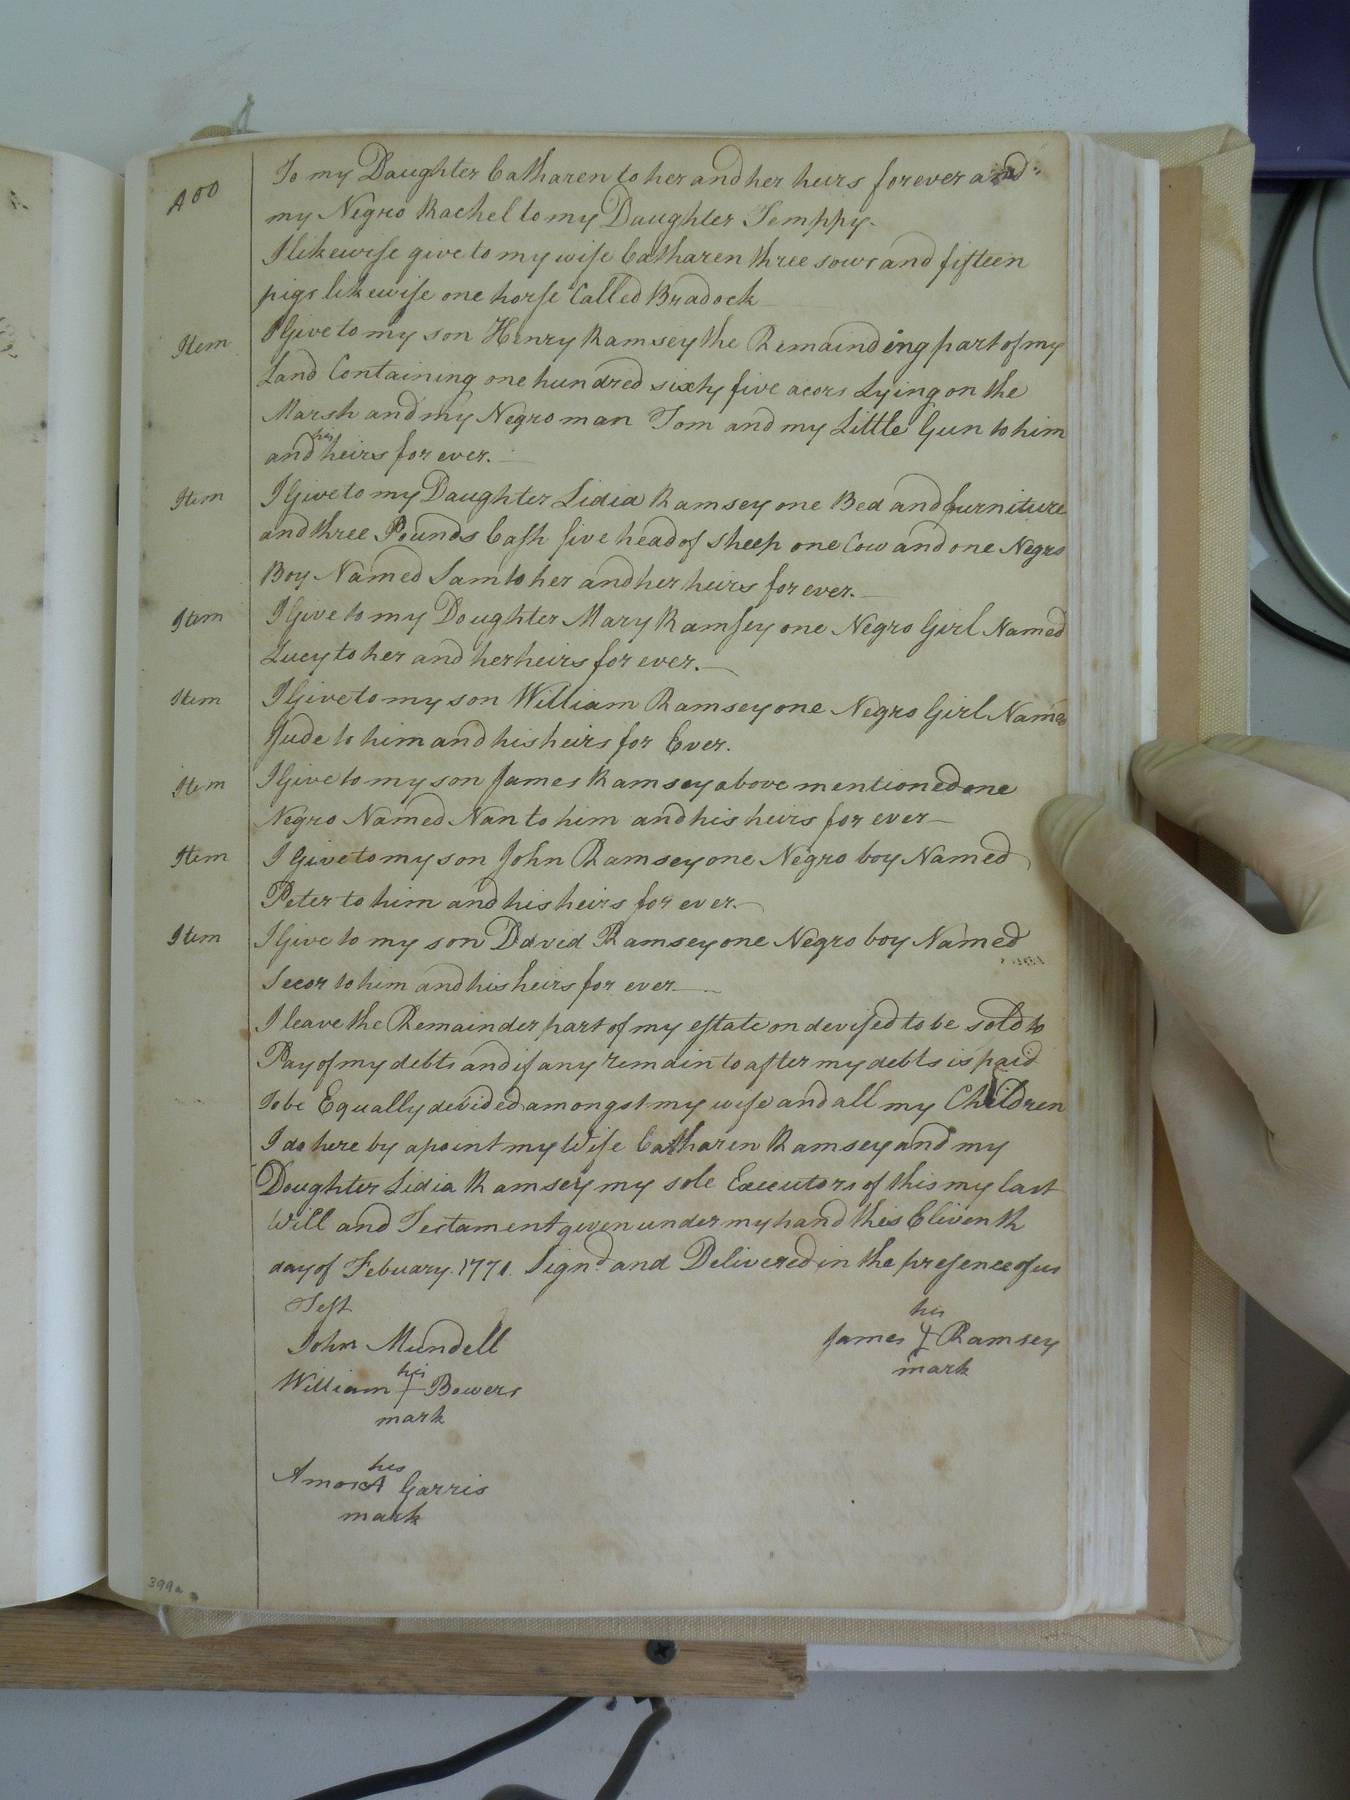 400
To my Daughter Catharen to her and her heirs forever and
my Negro Rachel to my Daughter Temppy.
I likewise give to my wife Catharen three sows and fifteen
pigs likewise one horse Called Bradock
Item I Give to my son Henry Ramsey the Remainding part of my
Land Containing one hundred sixty five acors Lying on the
Marsh and my Negro man Tom and my Little Gun to him
and his heirs for ever.
Item I Give to my Daughter Lidia Ramsey one Bed and furniture
and three Pounds Cash five head of sheep one Cow and one Negro
Boy Named Sam to her and her heirs for ever.
Item I Give to my Doughter Mary Ramsey one Negro Girl Named
Lucy to her and her heirs for ever.
Item I Give to my son William Ramsey one Negro Girl Named
Jude to him and his heirs for Ever.
Item I Give to my son James Ramsey above mentioned one
Negro Named Nan to him and his heirs for ever
Item I Give to my son John Ramsey one Negro boy Named
Peter to him and his heirs for ever.
Item I Give to my son David Ramsey one Negro boy Named
Secor to him and his heirs for ever
I leave the Remainder part of my estate on devised to be sold to
Pay of my debts and if any remain to after my debts is paid
To be Equally devided amongst my wife and all my Children
I do here by apoint my Wife Catharen Ramsey and my
Doughter Lidia Ramsey my sole Executors of this my last
Will and Testament given under my hand this Eliventh
day of Febuary 1771. Signd. and Delivered in the presence of us
Test
his
John Mundell James Ramsey
mark
his
William Bowers
mark
his
Amos A Garris
mark
399a